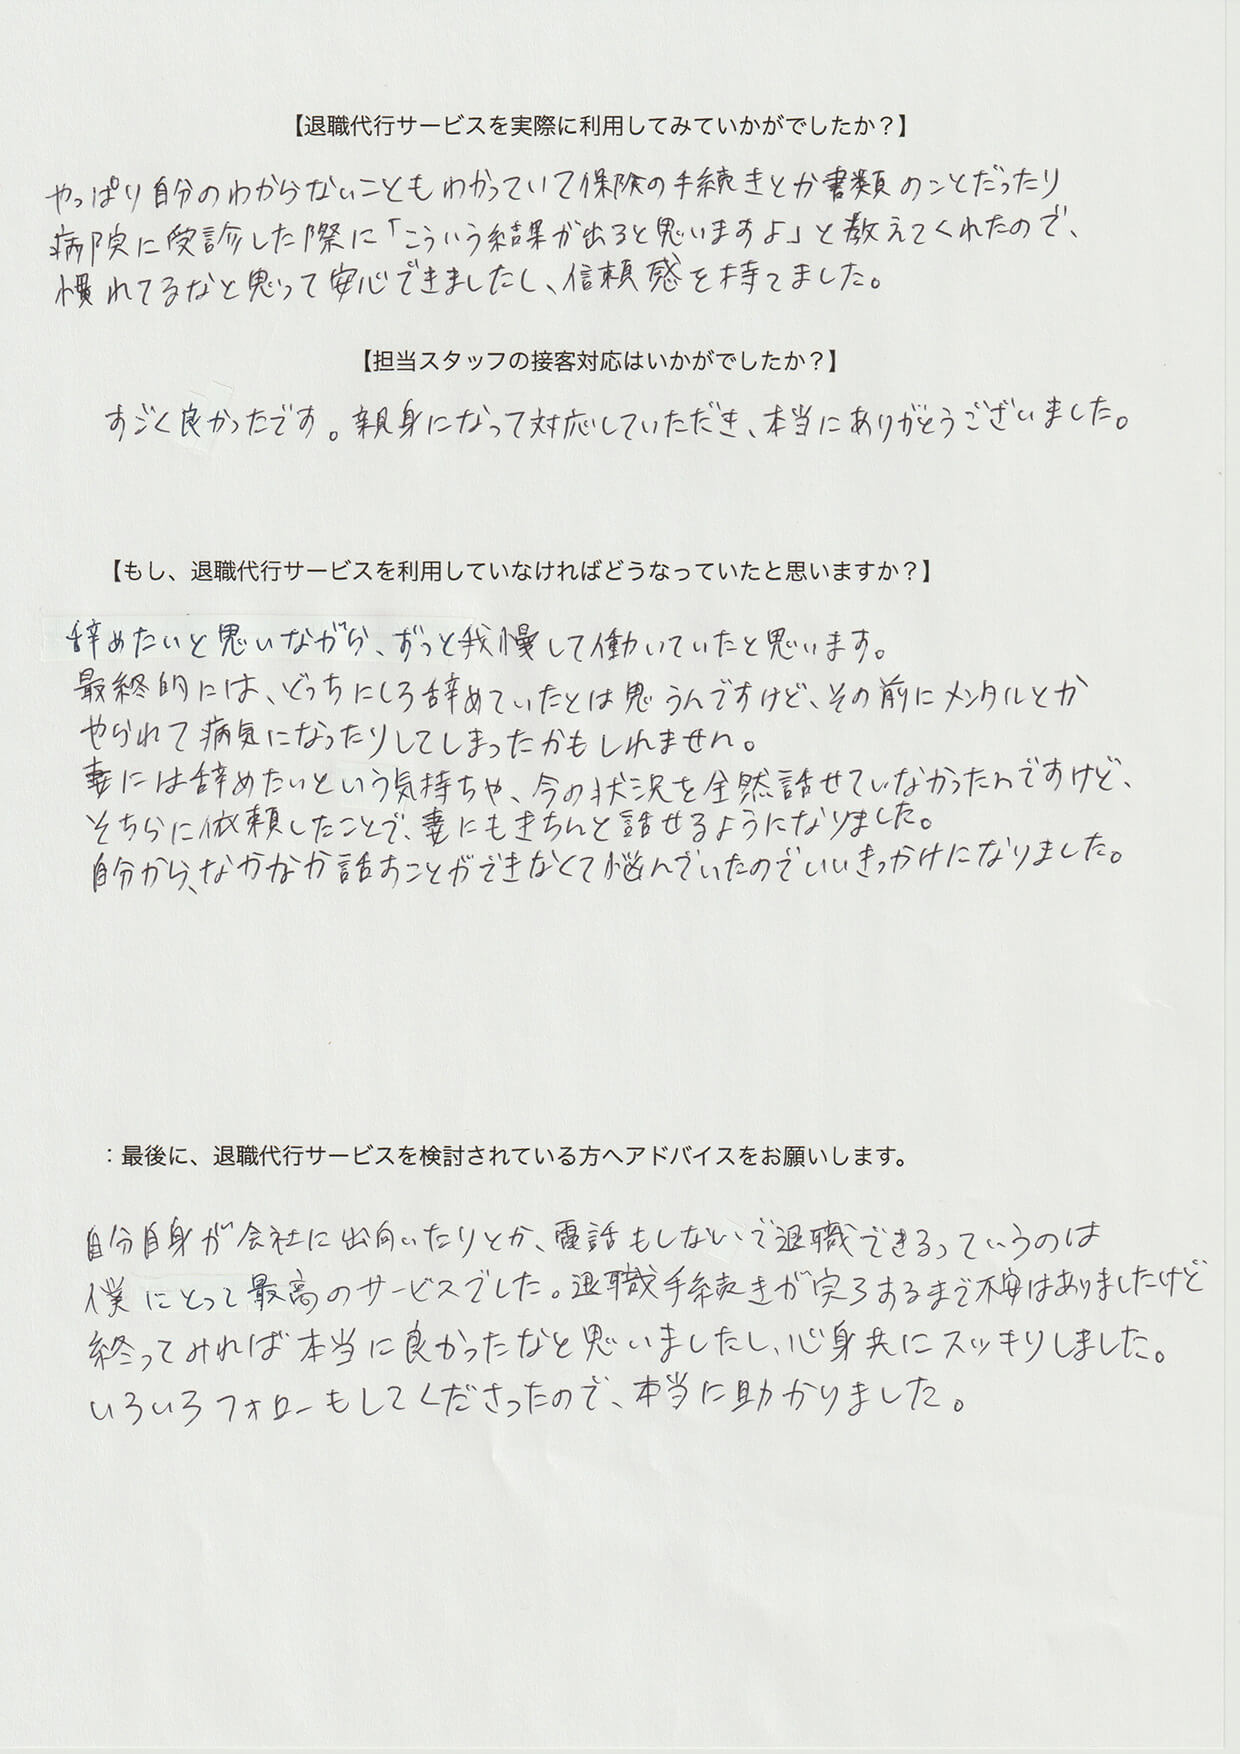 【退職代行サービスを実際に利用してみていかがでしたか？】
やっぱり自分のわからないこともわかっていて保険の手続きとか書類のことだったり
病院に受診した際に「こういう結果が出ると思いますよ」と教えてくれたので、
慣れてるなと思って安心できましたし、信頼感を持てました。
【担当スタッフの接客対応はいかがでしたか？】
すごく良かったです。親身になって対応していただき、本当にありがとうございました。
【もし、退職代行サービスを利用していなければどうなっていたと思いますか？】
辞めたいと思いながら、ずっと我慢して働いていたと思います。
最終的には、どっちにしろ辞めていたとは思うんですけど、その前にメンタルとか
やられて病気になったりしてしまったかもしれません。
妻には辞めたいという気持ちや、今の状況を全然話せていなかったんですけど、
そちらに依頼したことで、妻にもきちんと話せるようになりました。
自分から、なかなか話すことができなくて悩んでいたのでいいきっかけになりました。
：最後に、退職代行サービスを検討されている方へアドバイスをお願いします。
自分自身が会社に出向いたりとか、電話もしないで退職できるっていうのは
僕にとって最高のサービスでした。退職手続きが完了するまで不安はありましたけど
終ってみれば本当に良かったなと思いましたし、心身共にスッキリしました。
いろいろフォローもしてくださったので、本当に助かりました。